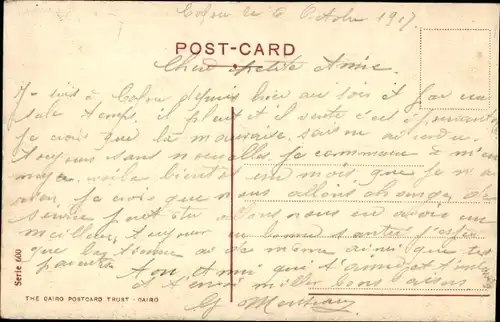 le 6 Octobre 1917
POST-CARD
Chère petite Amie
Je suis à depuis hier au soir et par un
sale temps, il pleut et il vente c'est
Je crois que la mauvaise saison
toujours sans nouvelles je commence à m'en-
voila bientot un mois que je n'ai
rien, je crois que nous allons changer de
service peut être allons nous en avoir un
meilleur, toujours en bonne santé j'espère
que la tienne est de même ainsi que tes
parents
Ton ami qui t'aime et
et t'envoi mille bons baisers
Serie 600
THE CAIRO POSTCARD TRUST - CAIRO